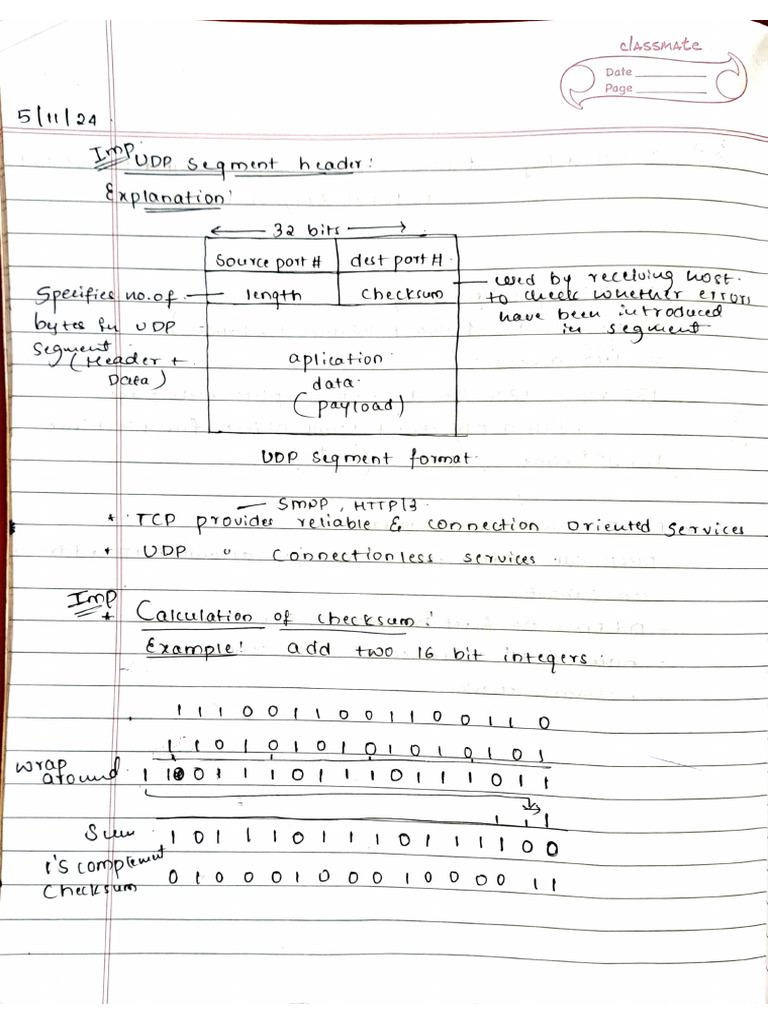 classmate
Date
Page
5/11/24
Imp UDP segment header:
Explanation:
32 bits
Source port # dest port #.
length checksum
Specifies no. of
bytes in UDP
segment
(Header +
Data)
used by receiving host.
to check whether errors
have been introduced
in segment
aplication
data.
(payload)
UDP segment format.
SMNP, HTTP/3.
* TCP provides reliable & connection oriented services
* UDP " Connectionless services.
Imp
* Calculation of checksum:
Example: add two 16 bit integers.
1 1 1 0 0 1 1 0 0 1 1 0 0 1 1 0
1 1 0 1 0 1 0 1 0 1 0 1 0 1 0 1
wrap
around 1 1 0 0 1 1 1 0 1 1 1 0 1 1 1 0 1 1
1 1 1
Sum 1 0 1 1 1 0 1 1 1 0 1 1 1 1 0 0
1's complement
checksum 0 1 0 0 0 1 0 0 0 1 0 0 0 0 1 1